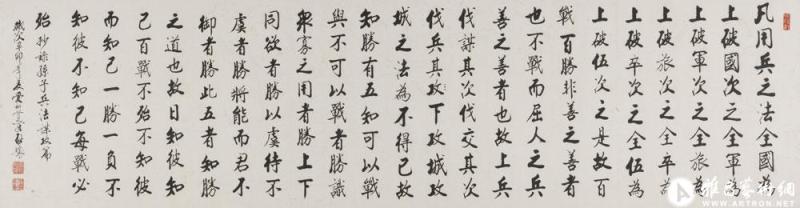 凡用兵之法全國為
上破國次之全軍為
上破軍次之全旅為
上破旅次之全卒為
上破卒次之全伍為
上破伍次之是故百
戰百勝非善之善者
也不戰而屈人之兵
善之善者也故上兵
伐謀其次伐交其次
伐兵其攻下攻城攻
城之法為不得已故
知勝有五知可以戰
與不可以戰者勝識
眾寡之用者勝上下
同欲者勝以虞待不
虞者勝將能而君不
御者勝此五者知勝
之道也故曰知彼知
己百戰不殆不知彼
而知己一勝一負不
知彼不知己每戰必
殆 抄錄孫子兵法謀攻篇
歲次辛卯年
雅昌艺术网
WWW.ARTRON.NET